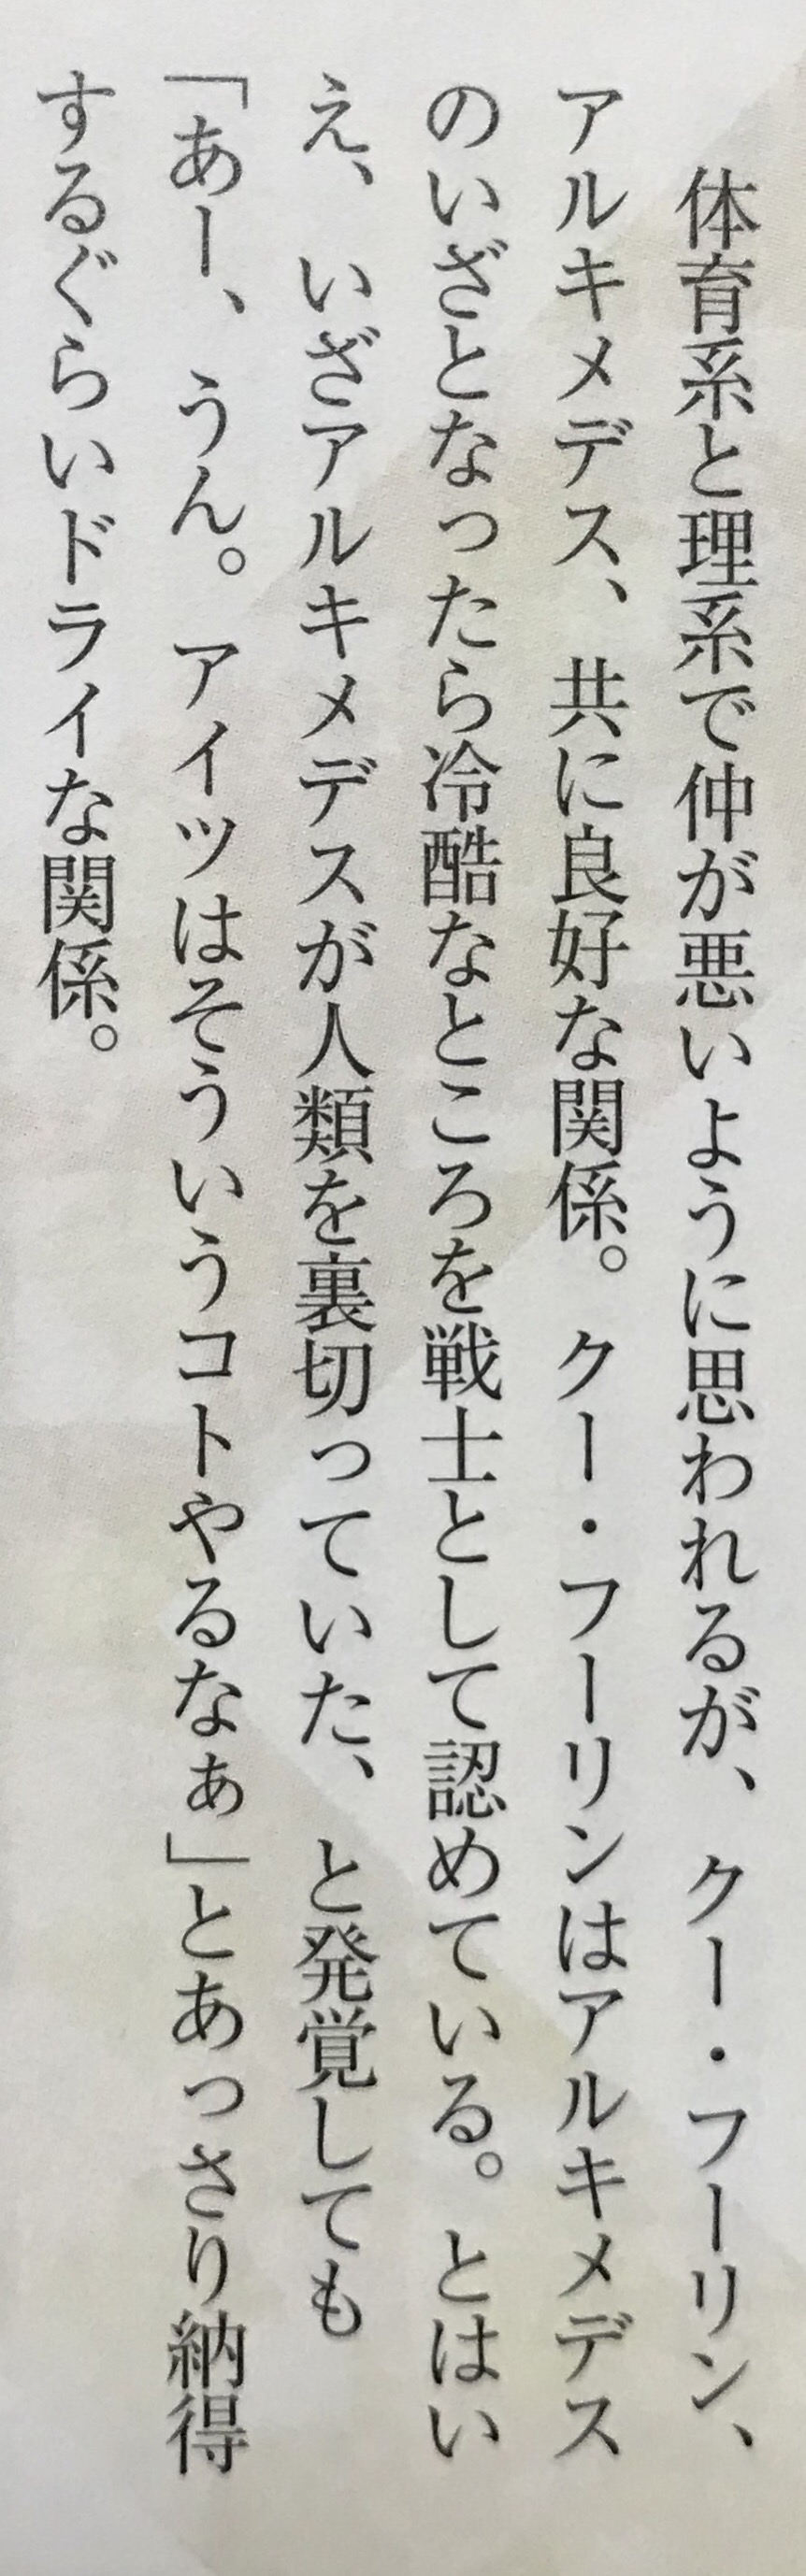 体育系と理系で仲が悪いように思われるが、クー・フーリン、
アルキメデス、共に良好な関係。クー・フーリンはアルキメデス
のいざとなったら冷酷なところを戦士として認めている。とはい
え、いざアルキメデスが人類を裏切っていた、と発覚しても
「あー、うん。アイツはそういうコトやるなぁ」とあっさり納得
するぐらいドライな関係。